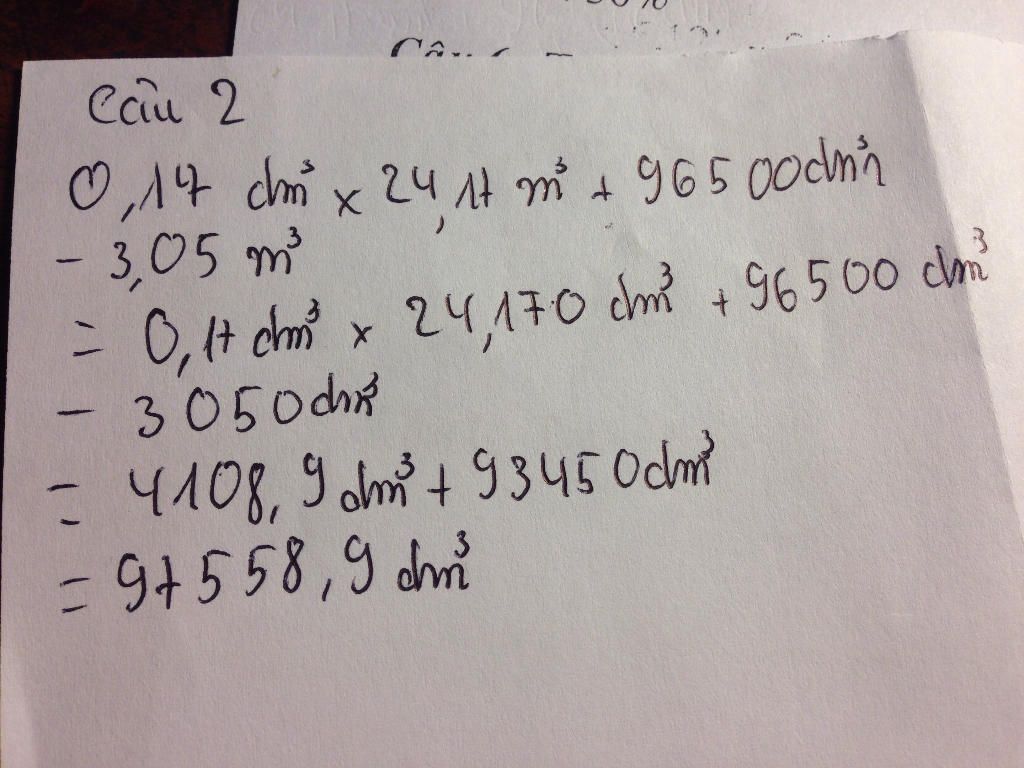 Câu 2
0,17 dm³ x 24,17 m³ + 96500dm³
- 3,05 m³
= 0,17 dm³ x 24,170 dm³ + 96500 dm³
- 3050dm³
= 4108,9 dm³ + 93450dm³
= 97558,9 dm³